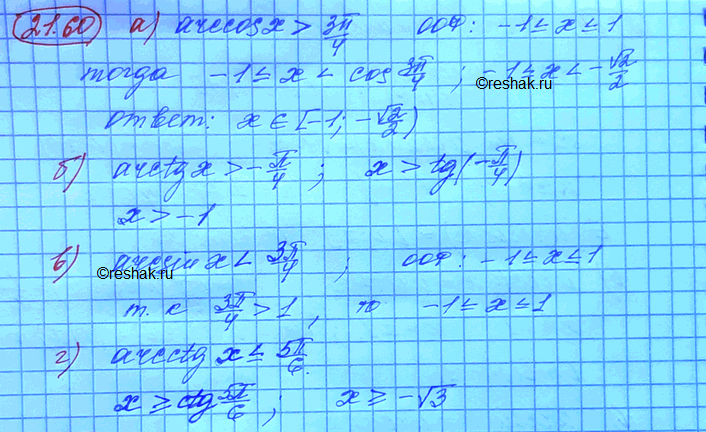 21.60 а) arccos x > 3π/4 ООФ: -1 ≤ x ≤ 1
тогда -1 ≤ x < cos 3π/4 ; -1 ≤ x < -√2/2
©reshak.ru
ответ: x ∈ [-1; -√2/2)
б) arctg x > -π/4 ; x > tg(-π/4)
x > -1
в) arcsin x < 3π/4 ; ООФ: -1 ≤ x ≤ 1
©reshak.ru
т.к 3π/4 > 1, то -1 ≤ x ≤ 1
г) arcctg x ≤ 5π/6.
x ≥ ctg 5π/6 ; x ≥ -√3